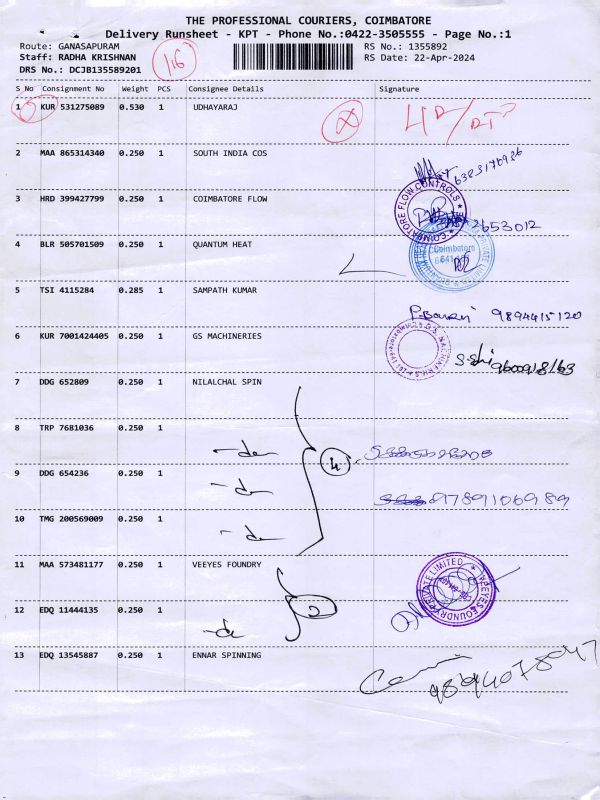 THE PROFESSIONAL COURIERS, COIMBATORE
Delivery Runsheet - KPT - Phone No.:0422-3505555 - Page No.:1
Route: GANASAPURAM RS No.: 1355892
Staff: RADHA KRISHNAN 116 RS Date: 22-Apr-2024
DRS No.: DCJB135589201
S No Consignment No Weight PCS Consignee Details Signature
1 KUR 531275089 0.530 1 UDHAYARAJ
2 MAA 865314340 0.250 1 SOUTH INDIA COS
3 HRD 399427799 0.250 1 COIMBATORE FLOW 2653012
COIMBATORE FLOW CONTROLS
4 BLR 505701509 0.250 1 QUANTUM HEAT
Coimbatore
5 TSI 4115284 0.285 1 SAMPATH KUMAR 9894415120
6 KUR 7001424405 0.250 1 GS MACHINERIES
7 DDG 652809 0.250 1 NILALCHAL SPIN
8 TRP 7681036 0.250 1 -do-
4
9 DDG 654236 0.250 1 -do- 817891106989
10 TMG 200569009 0.250 1 -do-
11 MAA 573481177 0.250 1 VEEYES FOUNDRY
VEEYES FOUNDRY PRIVATE LIMITED
12 EDQ 11444135 0.250 1 -do- 2
13 EDQ 13545887 0.250 1 ENNAR SPINNING 9894078947